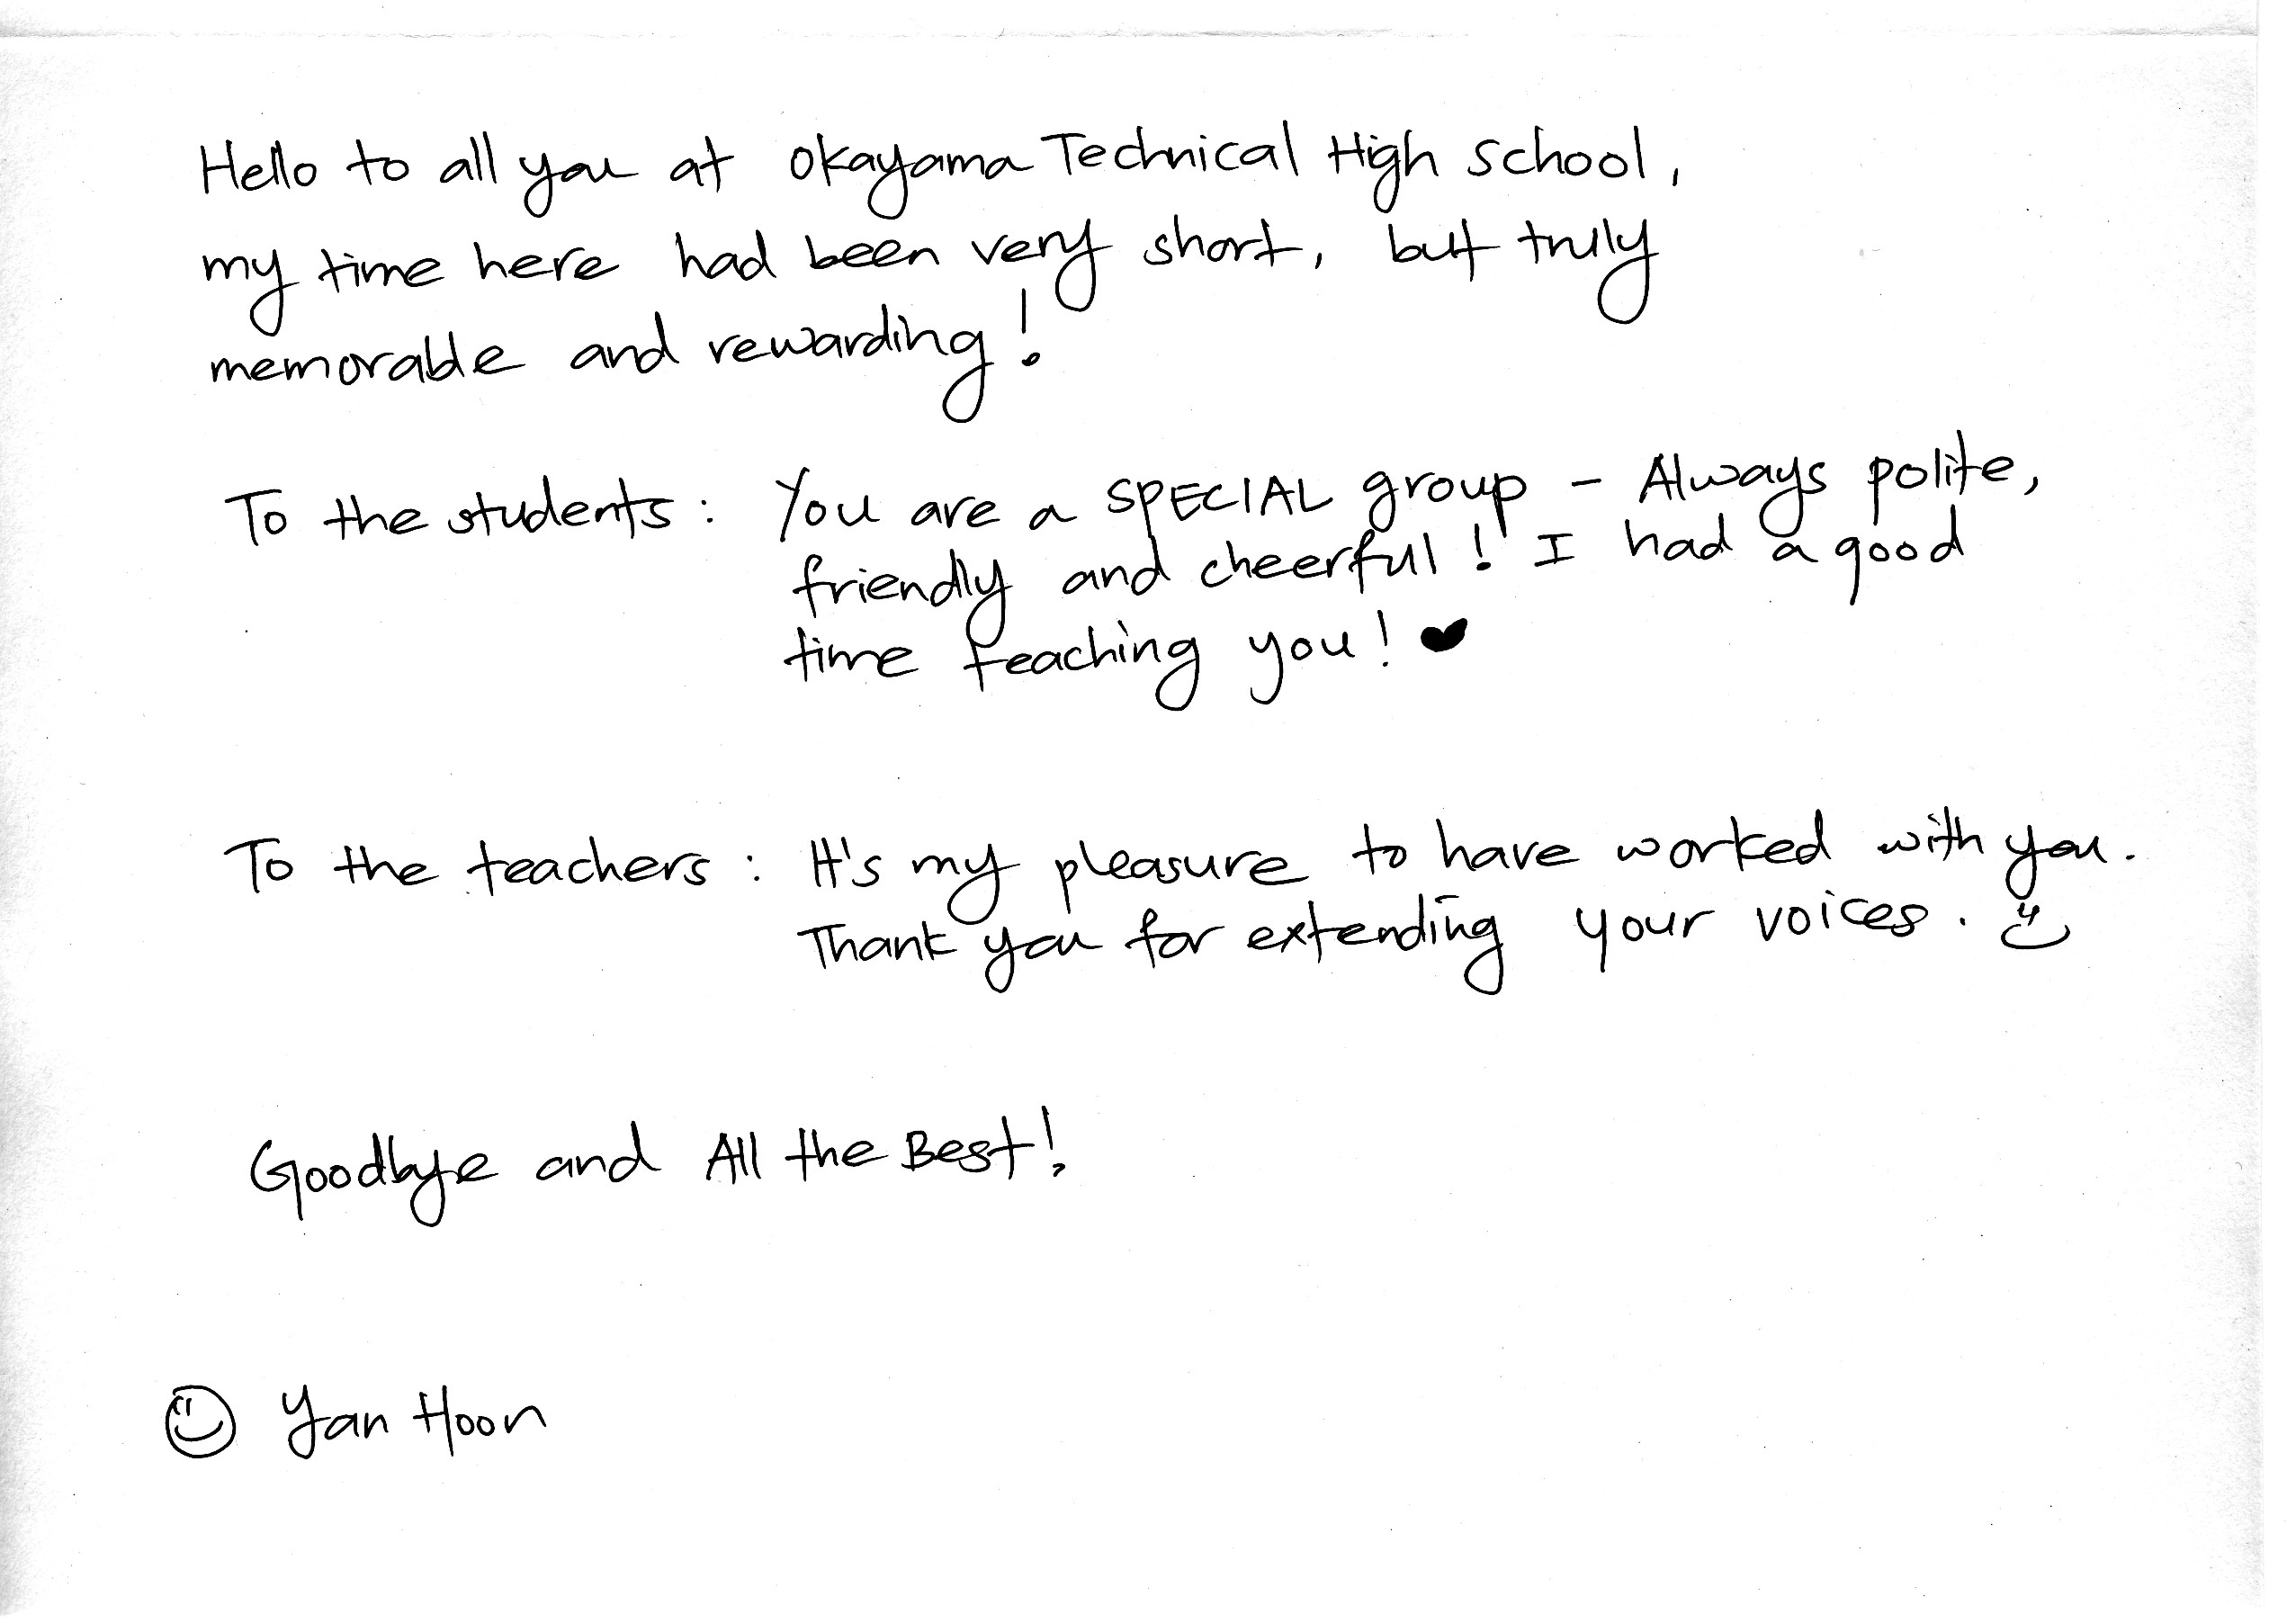 Hello to all you at Okayama Technical High School,
my time here had been very short, but truly
memorable and rewarding!
To the students: You are a SPECIAL group - Always polite,
friendly and cheerful! I had a good
time teaching you! ♥
To the teachers: It's my pleasure to have worked with you.
Thank you for extending your voices.
Goodbye and All the Best!
Yan Hoon